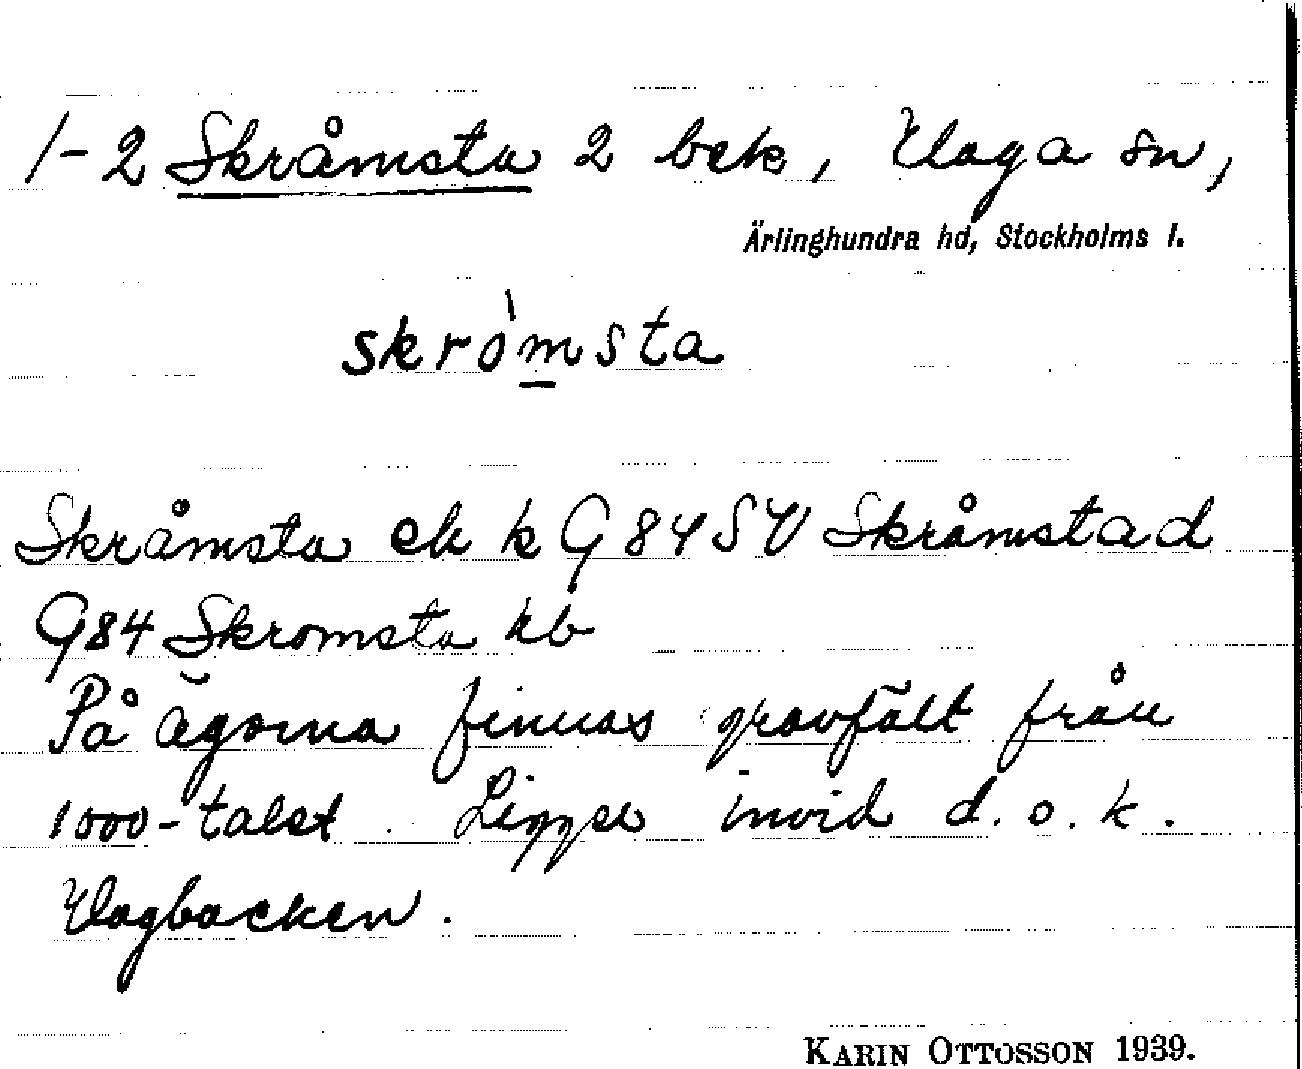 1-2 Skråmsta 2 bek, Haga sn,
Ärlinghundra hd, Stockholms l.
skròmsta
Skråmsta ek k G 84 SV Skråmstad
G84 Skromsta kb
På ägorna finnas gravfält från
1000-talet. Ligger invid d.s.k.
Hagbacken.
KARIN OTTOSSON 1939.